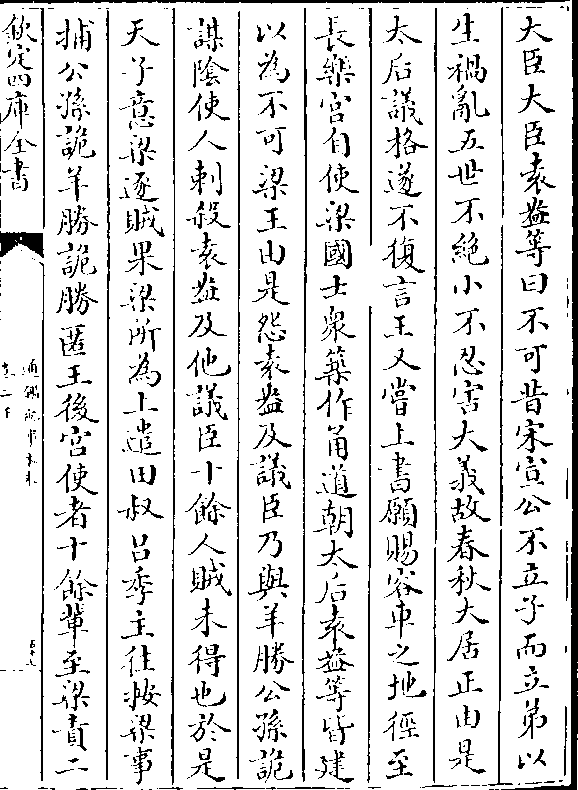 大臣大臣袁盎等曰不可昔宋宣公不立子而立弟以
生禍亂五世不絶小不忍害大義故春秋大居正由是
太后議格遂不復言王又嘗上書願賜容車之地徑至
長樂宮自使梁國士衆築作甬道朝太后袁盎等皆建
以為不可梁王由是怨袁盎及議臣乃與羊勝公孫詭
謀陰使人刺殺袁盎及他議臣十餘人賊未得也於是
天子意梁逐賊果梁所為上遣田叔吕季主往按梁事
捕公孫詭羊勝詭勝匿王後宮使者十餘輩至梁責二
欽定四庫全書
通鑑紀事本末
卷二下